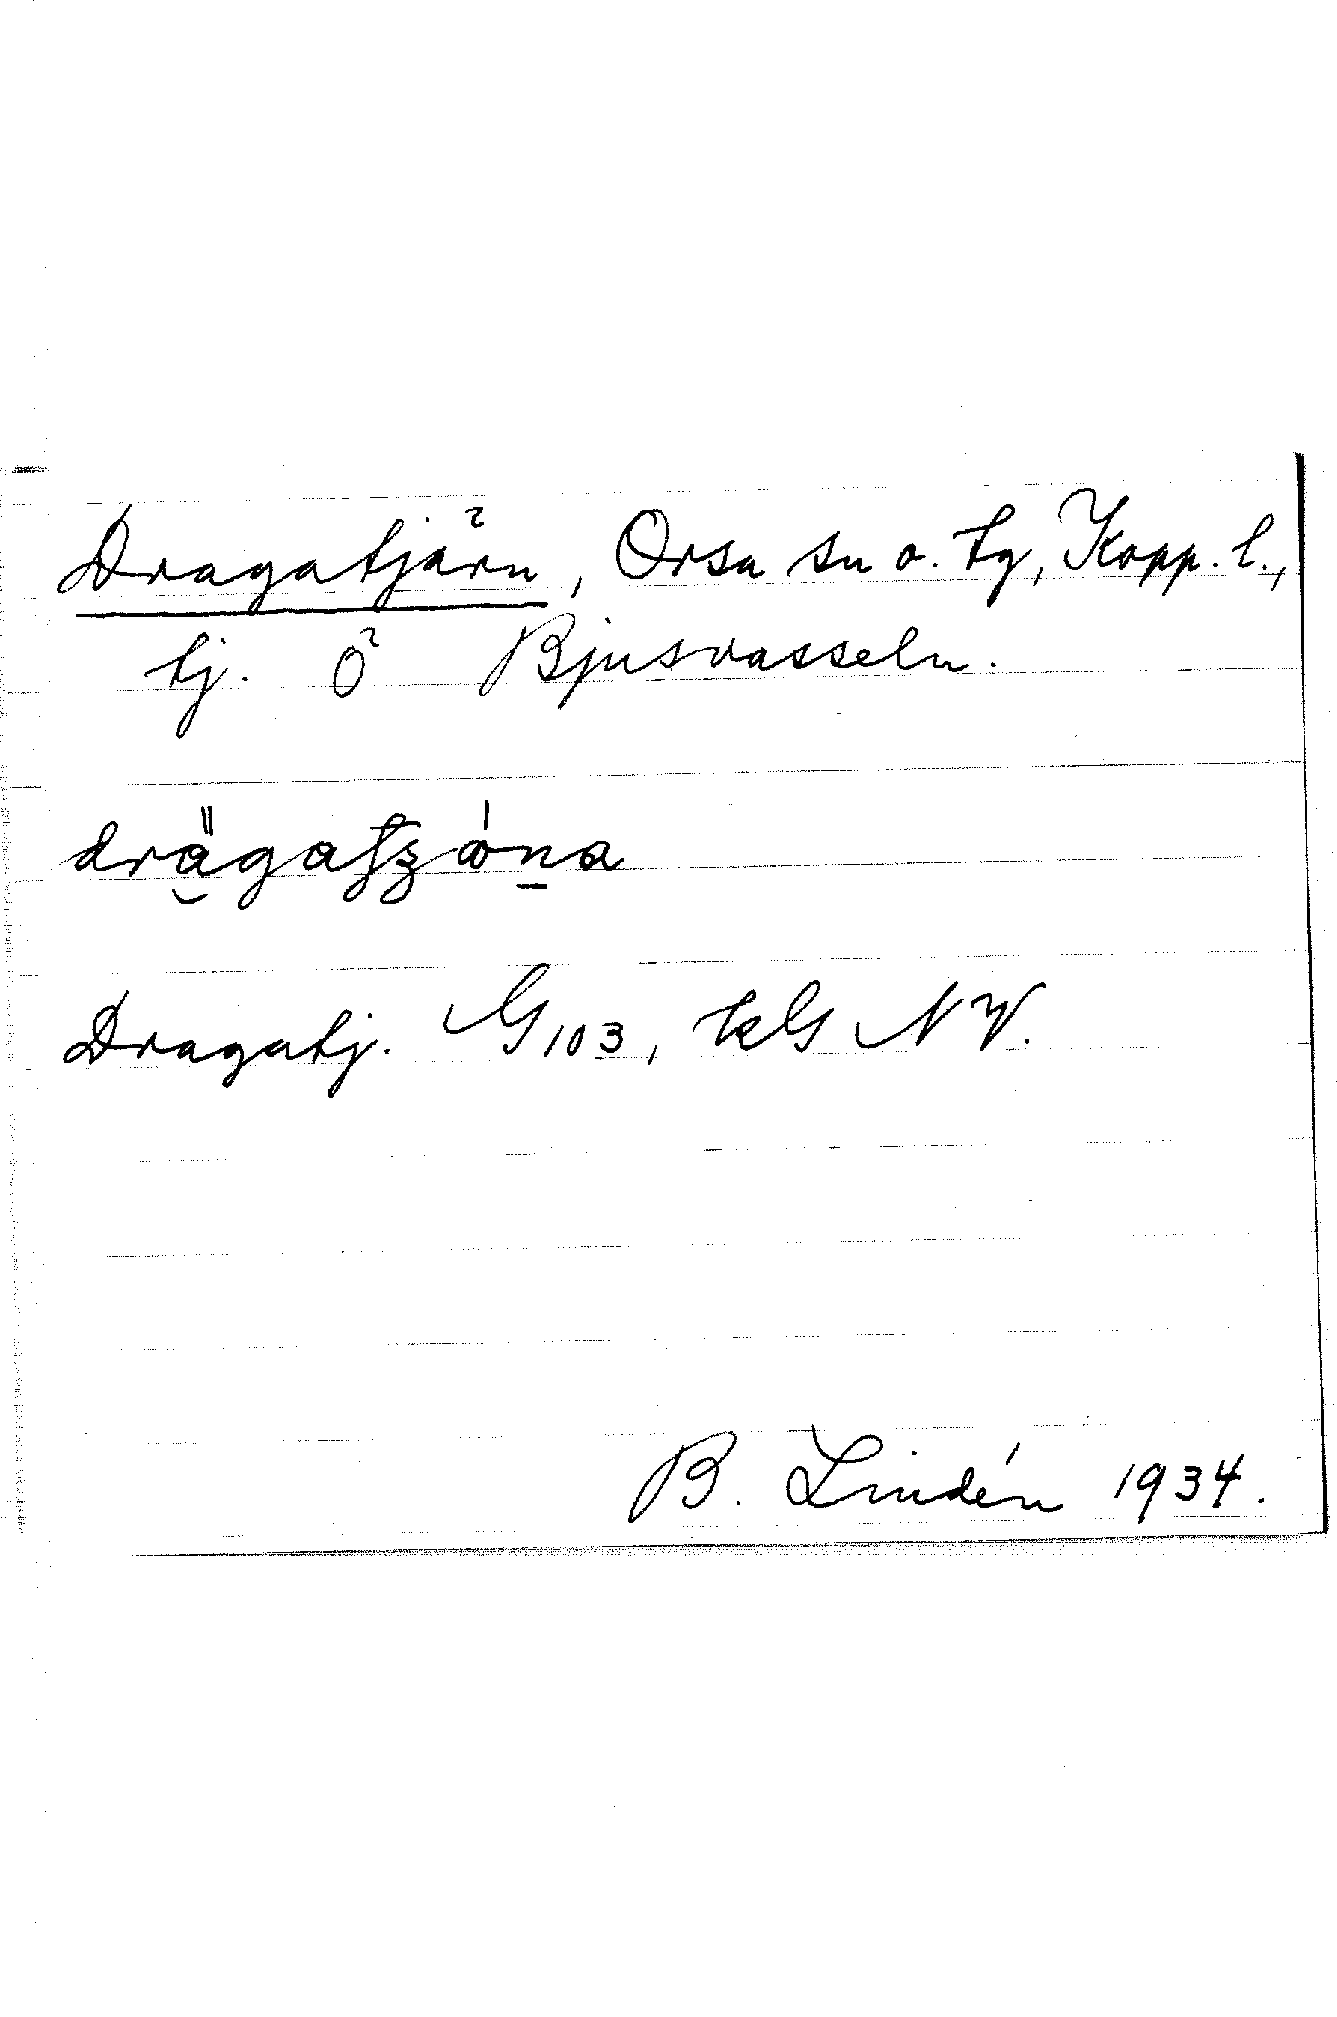 Dragatjärn, Orsa sn o. tg, Kopp. l.,
tj. Ö Bjusvasseln.
Dragatj. G 103, kG NV.
B. Lindén 1934.